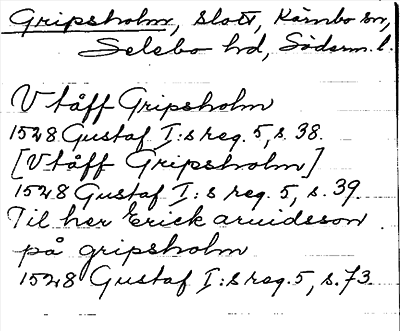 Gripsholm, slott, Kärnbo sn,
Selebo hd, Söderm. l.
V tåff Gripsholm
1528 Gustaf I:s reg. 5, s. 38.
[Vtåff Gripsholm]
1528 Gustaf I:s reg. 5, s. 39.
Til her Erick aruidsson
på gripsholm
1528 Gustaf I:s reg. 5, s. 73.